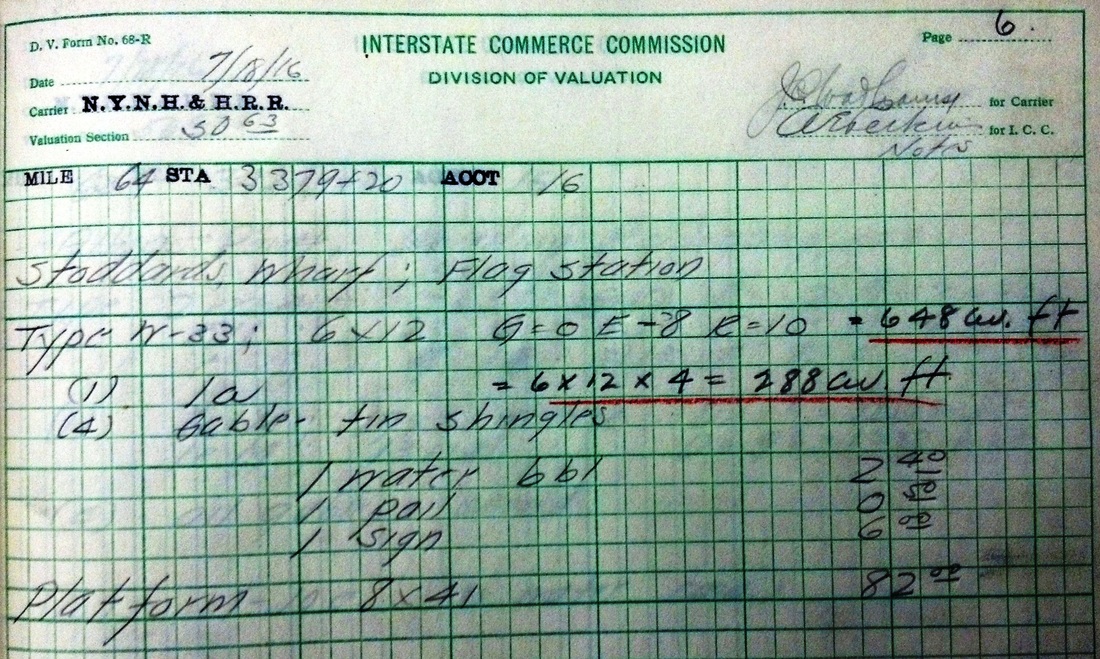 D. V. Form No. 68-R
INTERSTATE COMMERCE COMMISSION
Page 6
DIVISION OF VALUATION
Date 7/18/16
Carrier N.Y.N.H. & H.R.R.
for Carrier
Valuation Section 50 63
for I. C. C.
Notes
MILE 64 STA 3379+20 ACCT 16
Stoddards, Wharf; Flag Station
Type W-33; 6x12 G=0 E-8 R=10 = 648 cu. ft
(1) 1a = 6x12x4 = 288 cu. ft.
(4) Gable- tin shingles
1 water bbl 2 40
1 pail 0 50
1 sign 6 00
Platform 8x41 82 00